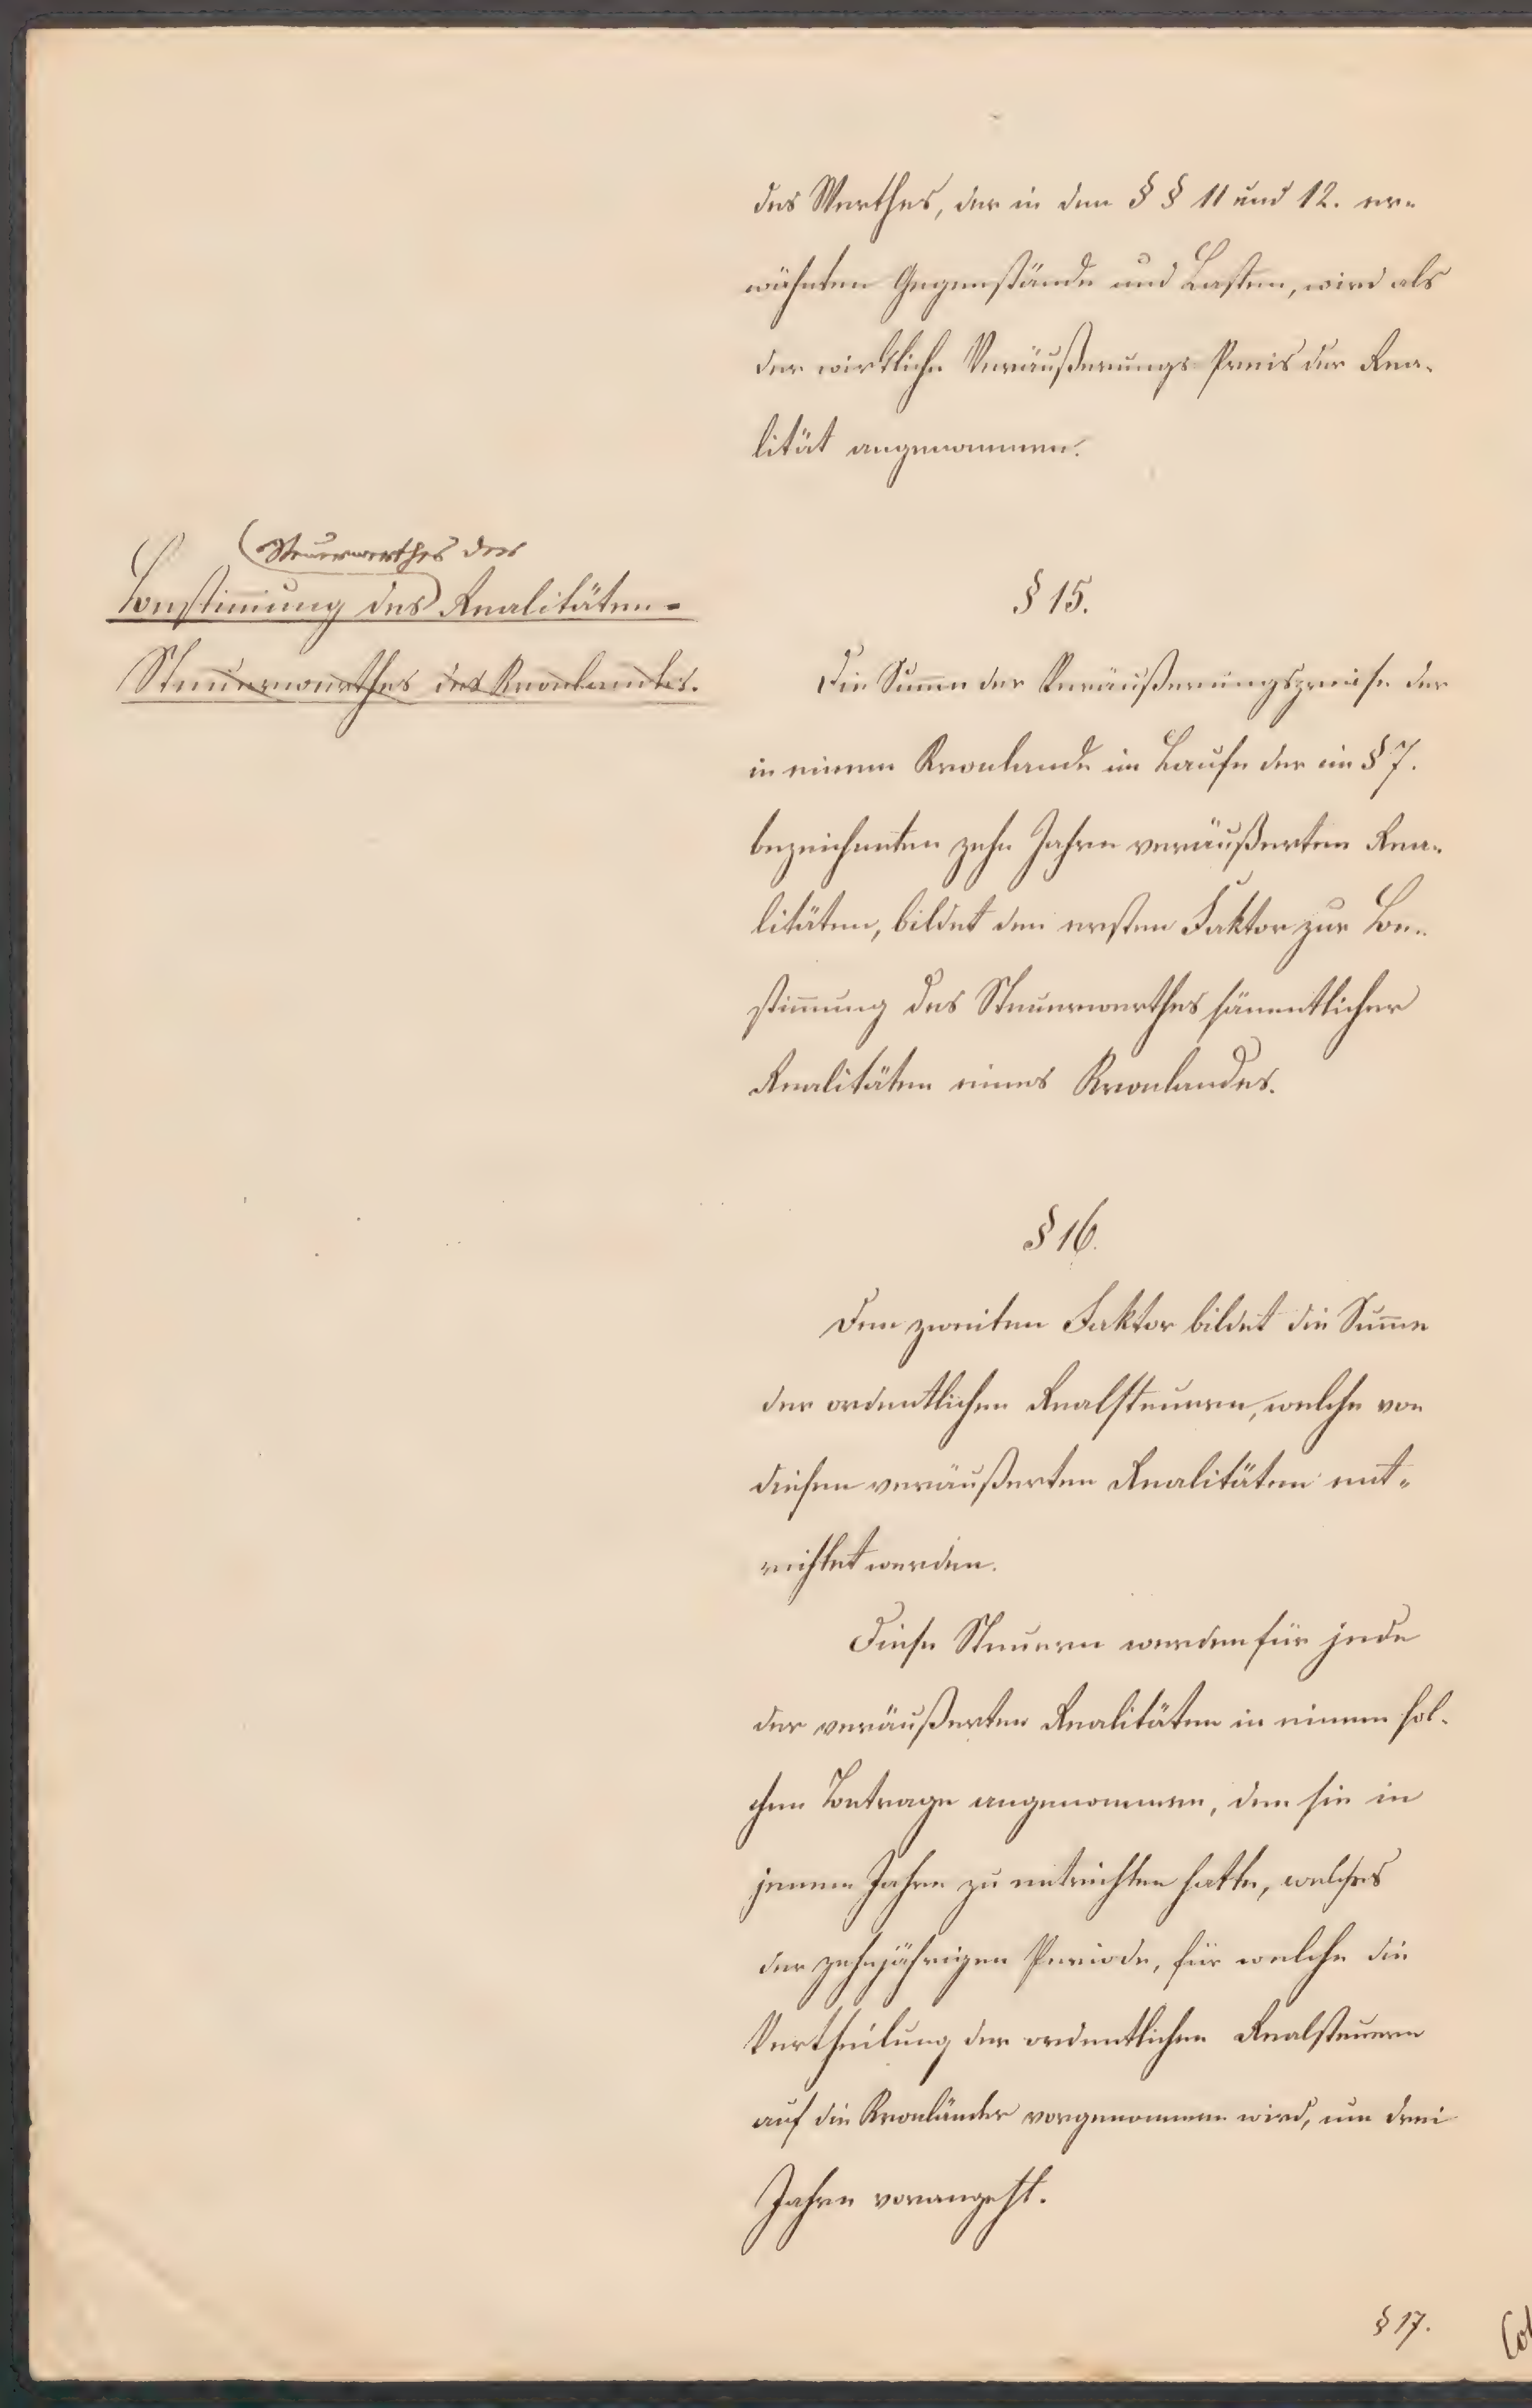 des Werthes, der in den § § 11 und 12. er-
wähnten Gegenstände und Lasten, wird als
der wirkliche Veräußerungs Preis der Rea-
lität angenommen.
Steuerwerthes der
Bestim̅ung des Realitäten-
Steuerwerthes des Kronlandes.
§ 15.
Die Sum̅e der Veräußerungspreise der
in einem Kronlande im Laufe der im § 7.
bezeichneten zehn Jahre veräußerten Rea-
litäten, bildet den ersten Faktor zur Be-
stim̅ung des Steuerwerthes sämmtlicher
Realitäten eines Kronlandes.
§ 16.
Den zweiten Faktor bildet die Sum̅e
der ordentlichen Realsteuern, welche von
diesen veräußerten Realitäten ent-
richtet werden.
Diese Steuern werden für jede
der veräußerten Realitäten in einem sol-
chen Betrage angenommen, den sie in
jenem Jahre zu entrichten hatte, welches
der zehnjährigen Periode, für welche die
Vertheilung der ordentlichen Realsteuern
auf die Kronländer vorgenommen wird, um drei
Jahre vorangeht.
§ 17.